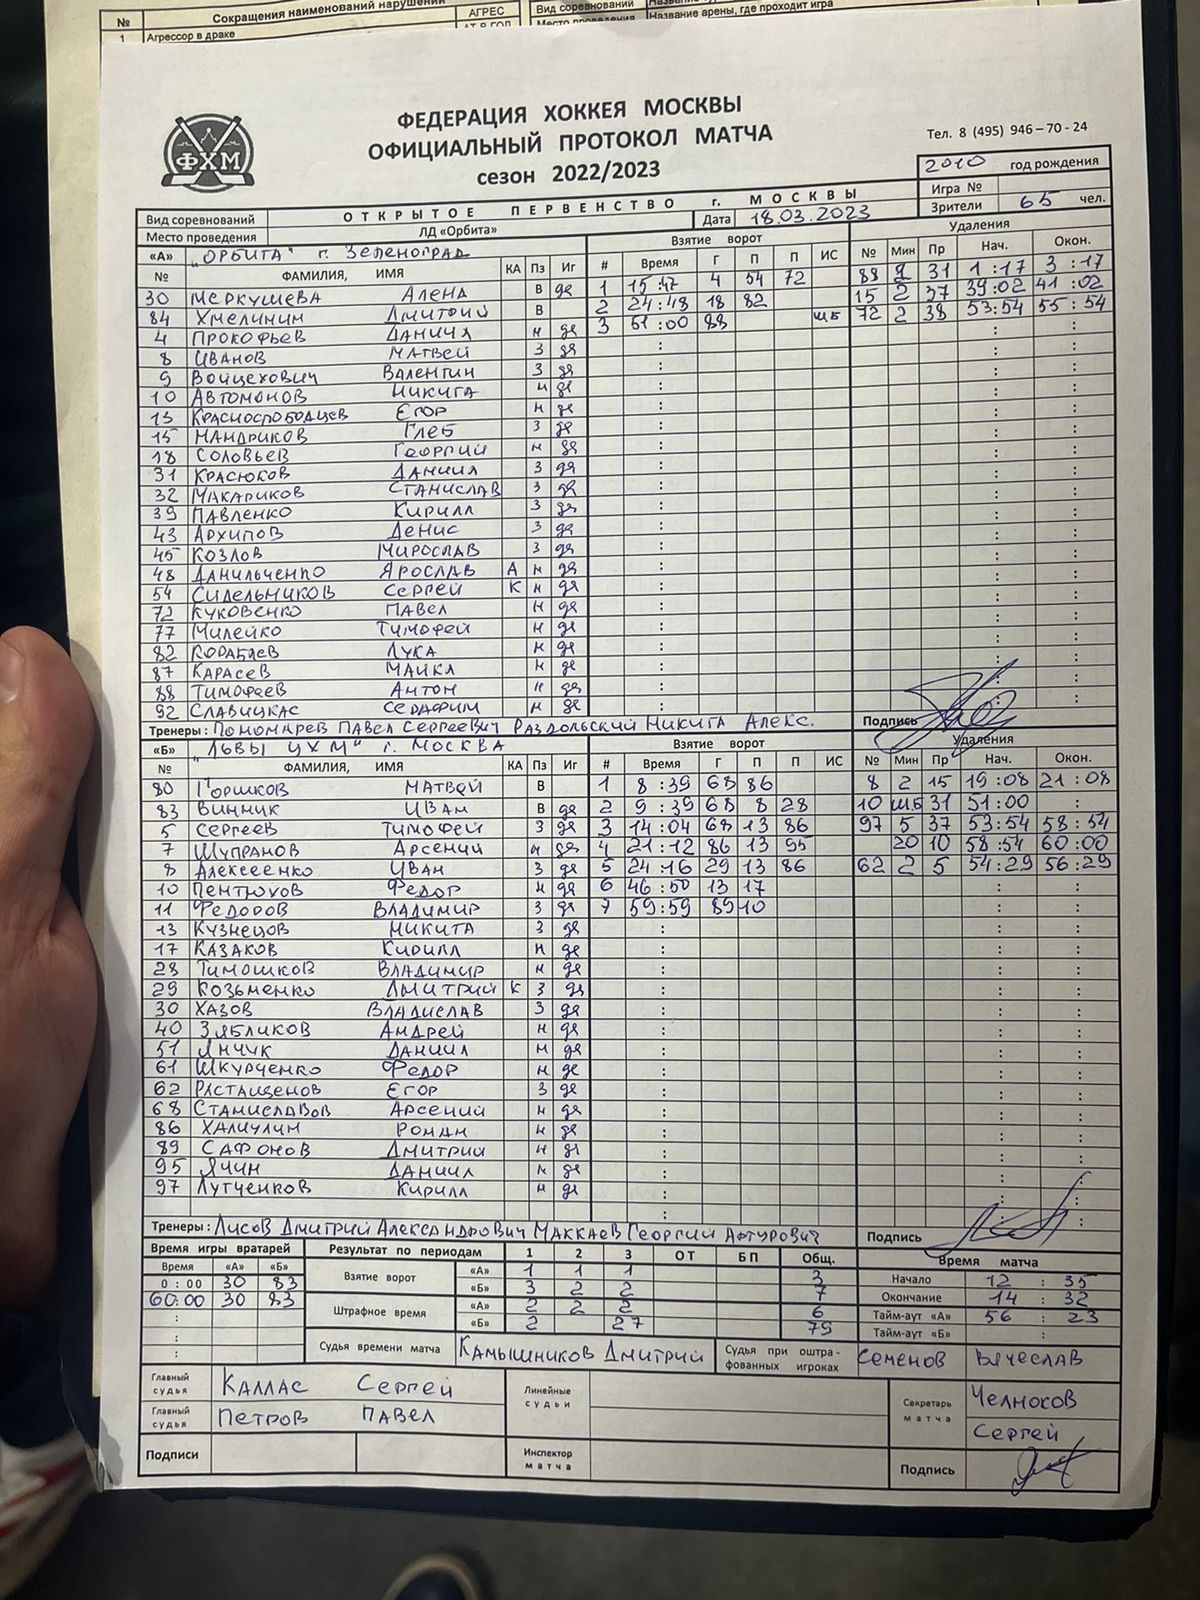 № Сокращения наименований нарушений АГРЕС Вид соревнований
1 Агрессор в драке Место проведения Название арены, где проходит игра
ФХМ
ФЕДЕРАЦИЯ ХОККЕЯ МОСКВЫ
ОФИЦИАЛЬНЫЙ ПРОТОКОЛ МАТЧА
сезон 2022/2023
Тел. 8 (495) 946-70-24
2010 год рождения
Игра №
Зрители 65 чел.
Вид соревнований ОТКРЫТОЕ ПЕРВЕНСТВО г. МОСКВЫ
Место проведения ЛД «Орбита» Дата 18.03.2023
«А» "ОРБИТА" г. ЗЕЛЕНОГРАД Взятие ворот Удаления
№ ФАМИЛИЯ, ИМЯ КА Пз Иг # Время Г П П ИС № Мин Пр Нач. Окон.
30 МЕРКУШЕВА АЛЕНА В да 1 15:47 4 54 72 88 2 31 1:17 3:17
84 ХМЕЛИНИН ДМИТРИЙ В 2 24:48 18 82 15 2 37 39:02 41:02
4 ПРОКОФЬЕВ ДАНИЛА Н да 3 51:00 88 ШБ 72 2 38 53:54 55:54
8 ИВАНОВ МАТВЕЙ З да
9 ВОЙЦЕХОВИЧ ВАЛЕНТИН З да
10 АВТОМОНОВ НИКИТА Н да
13 КРАСНОСЛОБОДЦЕВ ЕГОР Н да
15 МАНДРИКОВ ГЛЕБ З да
18 СОЛОВЬЕВ ГЕОРГИЙ Н да
31 КРАСЮКОВ ДАНИИЛ З да
32 МАКАРИКОВ СТАНИСЛАВ З да
39 ПАВЛЕНКО КИРИЛЛ З да
43 АРХИПОВ ДЕНИС З да
45 КОЗЛОВ МИРОСЛАВ З да
48 ДАНИЛЬЧЕНКО ЯРОСЛАВ А Н да
54 СИДЕЛЬНИКОВ СЕРГЕЙ К Н да
72 КУКОВЕНКО ПАВЕЛ Н да
77 МИЛЕЙКО ТИМОФЕЙ Н да
82 КОРАБЛЕВ ЛУКА Н да
87 КАРАСЕВ МАЙКЛ Н да
88 ТИМОФЕЕВ АНТОН Н да
92 СЛАВИЦКАС СЕРАФИМ Н да
Тренеры: ПОНОМАРЕВ ПАВЕЛ СЕРГЕЕВИЧ РАЗДОЛЬСКИЙ НИКИТА АЛЕКС. Подпись
«Б» "ЛЬВЫ ЦХМ" г. МОСКВА Взятие ворот Удаления
№ ФАМИЛИЯ, ИМЯ КА Пз Иг # Время Г П П ИС № Мин Пр Нач. Окон.
80 ГОРШКОВ МАТВЕЙ В 1 8:39 68 86 8 2 15 19:08 21:08
83 ВИННИК ИВАН В да 2 9:39 68 8 28 10 Ш.Б 31 51:00
5 СЕРГЕЕВ ТИМОФЕЙ З да 3 14:04 68 13 86 97 5 37 53:54 58:54
7 ШУПРАНОВ АРСЕНИЙ Н да 4 21:12 86 13 95 20 10 58:54 60:00
8 АЛЕКСЕЕНКО ИВАН З да 5 24:16 29 13 86 62 2 5 54:29 56:29
10 ПЕНТЮХОВ ФЕДОР Н да 6 46:50 13 17
11 ФЕДОРОВ ВЛАДИМИР З да 7 59:59 89 10
13 КУЗНЕЦОВ НИКИТА З да
17 КАЗАКОВ КИРИЛЛ Н да
28 ТИМОШКОВ ВЛАДИМИР Н да
29 КОЗЬМЕНКО ДМИТРИЙ К З да
30 ХАЗОВ ВЛАДИСЛАВ З да
40 ЗЯБЛИКОВ АНДРЕЙ Н да
51 ЯНЧУК ДАНИИЛ Н да
61 ШКУРЧЕНКО ФЕДОР Н да
62 РАСТАЩЕНОВ ЕГОР З да
68 СТАНИСЛАВОВ АРСЕНИЙ Н да
86 ХАЛИУЛИН РОМАН Н да
89 САФОНОВ ДМИТРИЙ Н да
95 ЯЧИН ДАНИИЛ Н да
97 ЛУТЧЕНКОВ КИРИЛЛ Н да
Тренеры: ЛИСОВ ДМИТРИЙ АЛЕКСАНДРОВИЧ МАККАЕВ ГЕОРГИЙ АРТУРОВИЧ Подпись
Время игры вратарей Результат по периодам 1 2 3 ОТ БП Общ. Время матча
Время «А» «Б» Взятие ворот «А» 1 1 1 3 Начало 12:35
0:00 30 83 «Б» 3 2 2 7 Окончание 14:32
60:00 30 83 Штрафное время «А» 2 2 2 6 Тайм-аут «А» 56:23
«Б» 2 27 79 Тайм-аут «Б»
Судья времени матча КАМЫШНИКОВ ДМИТРИЙ Судья при оштрафованных игроках СЕМЕНОВ ВЯЧЕСЛАВ
Главный судья КАЛЛАС СЕРГЕЙ Линейные судьи Секретарь матча ЧЕЛНОКОВ
Главный судья ПЕТРОВ ПАВЕЛ СЕРГЕЙ
Подписи Инспектор матча Подпись